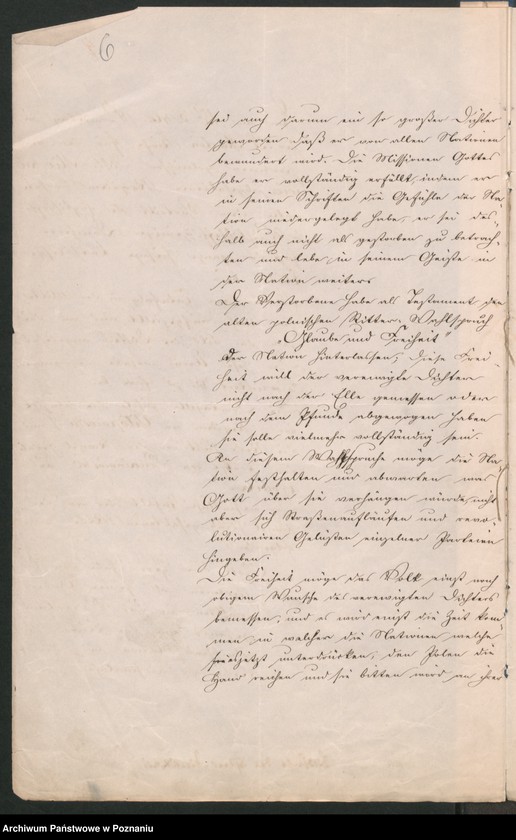 6
sei auch darum ein so großer Dichter
geworden daß er von allen Nationen
bewundert wird. Die Missionen Gottes
habe er vollständig erfüllt, indem er
in seinen Schriften die Gefühle der Na-
tion niedergelegt habe, er sei des-
halb auch nicht als gestorben zu betrach-
ten und lebe in seinem Geiste in
der Nation weiters
Der Verstorbene habe als Testament den
alten polnischen Ritter-Wahlspruch
„Glaube und Freiheit"
der Nation hinterlassen; diese Frei-
heit will der verewigte Dichter
nicht nach der Elle gemessen oder
nach dem Pfunde abgewogen haben
sie solle vielmehr vollständig sein.
An diesem Wahlspruche möge die Na-
tion festhalten und abwarten was
Gott über sie verhängen würde, nicht
aber sich Straßenaufläufen und revo-
lutionairen Gelüsten einzelner Parteien
hingeben.
Die Freiheit möge das Volk einst nach
obigem Wunsche des verewigten Dichters
bemessen, und es wird einst die Zeit kom-
men in welcher die Nationen welche
sie jetzt unterdrücken, den Polen die
Hand reichen und sie bitten wird an ihrer
Archiwum Państwowe w Poznaniu